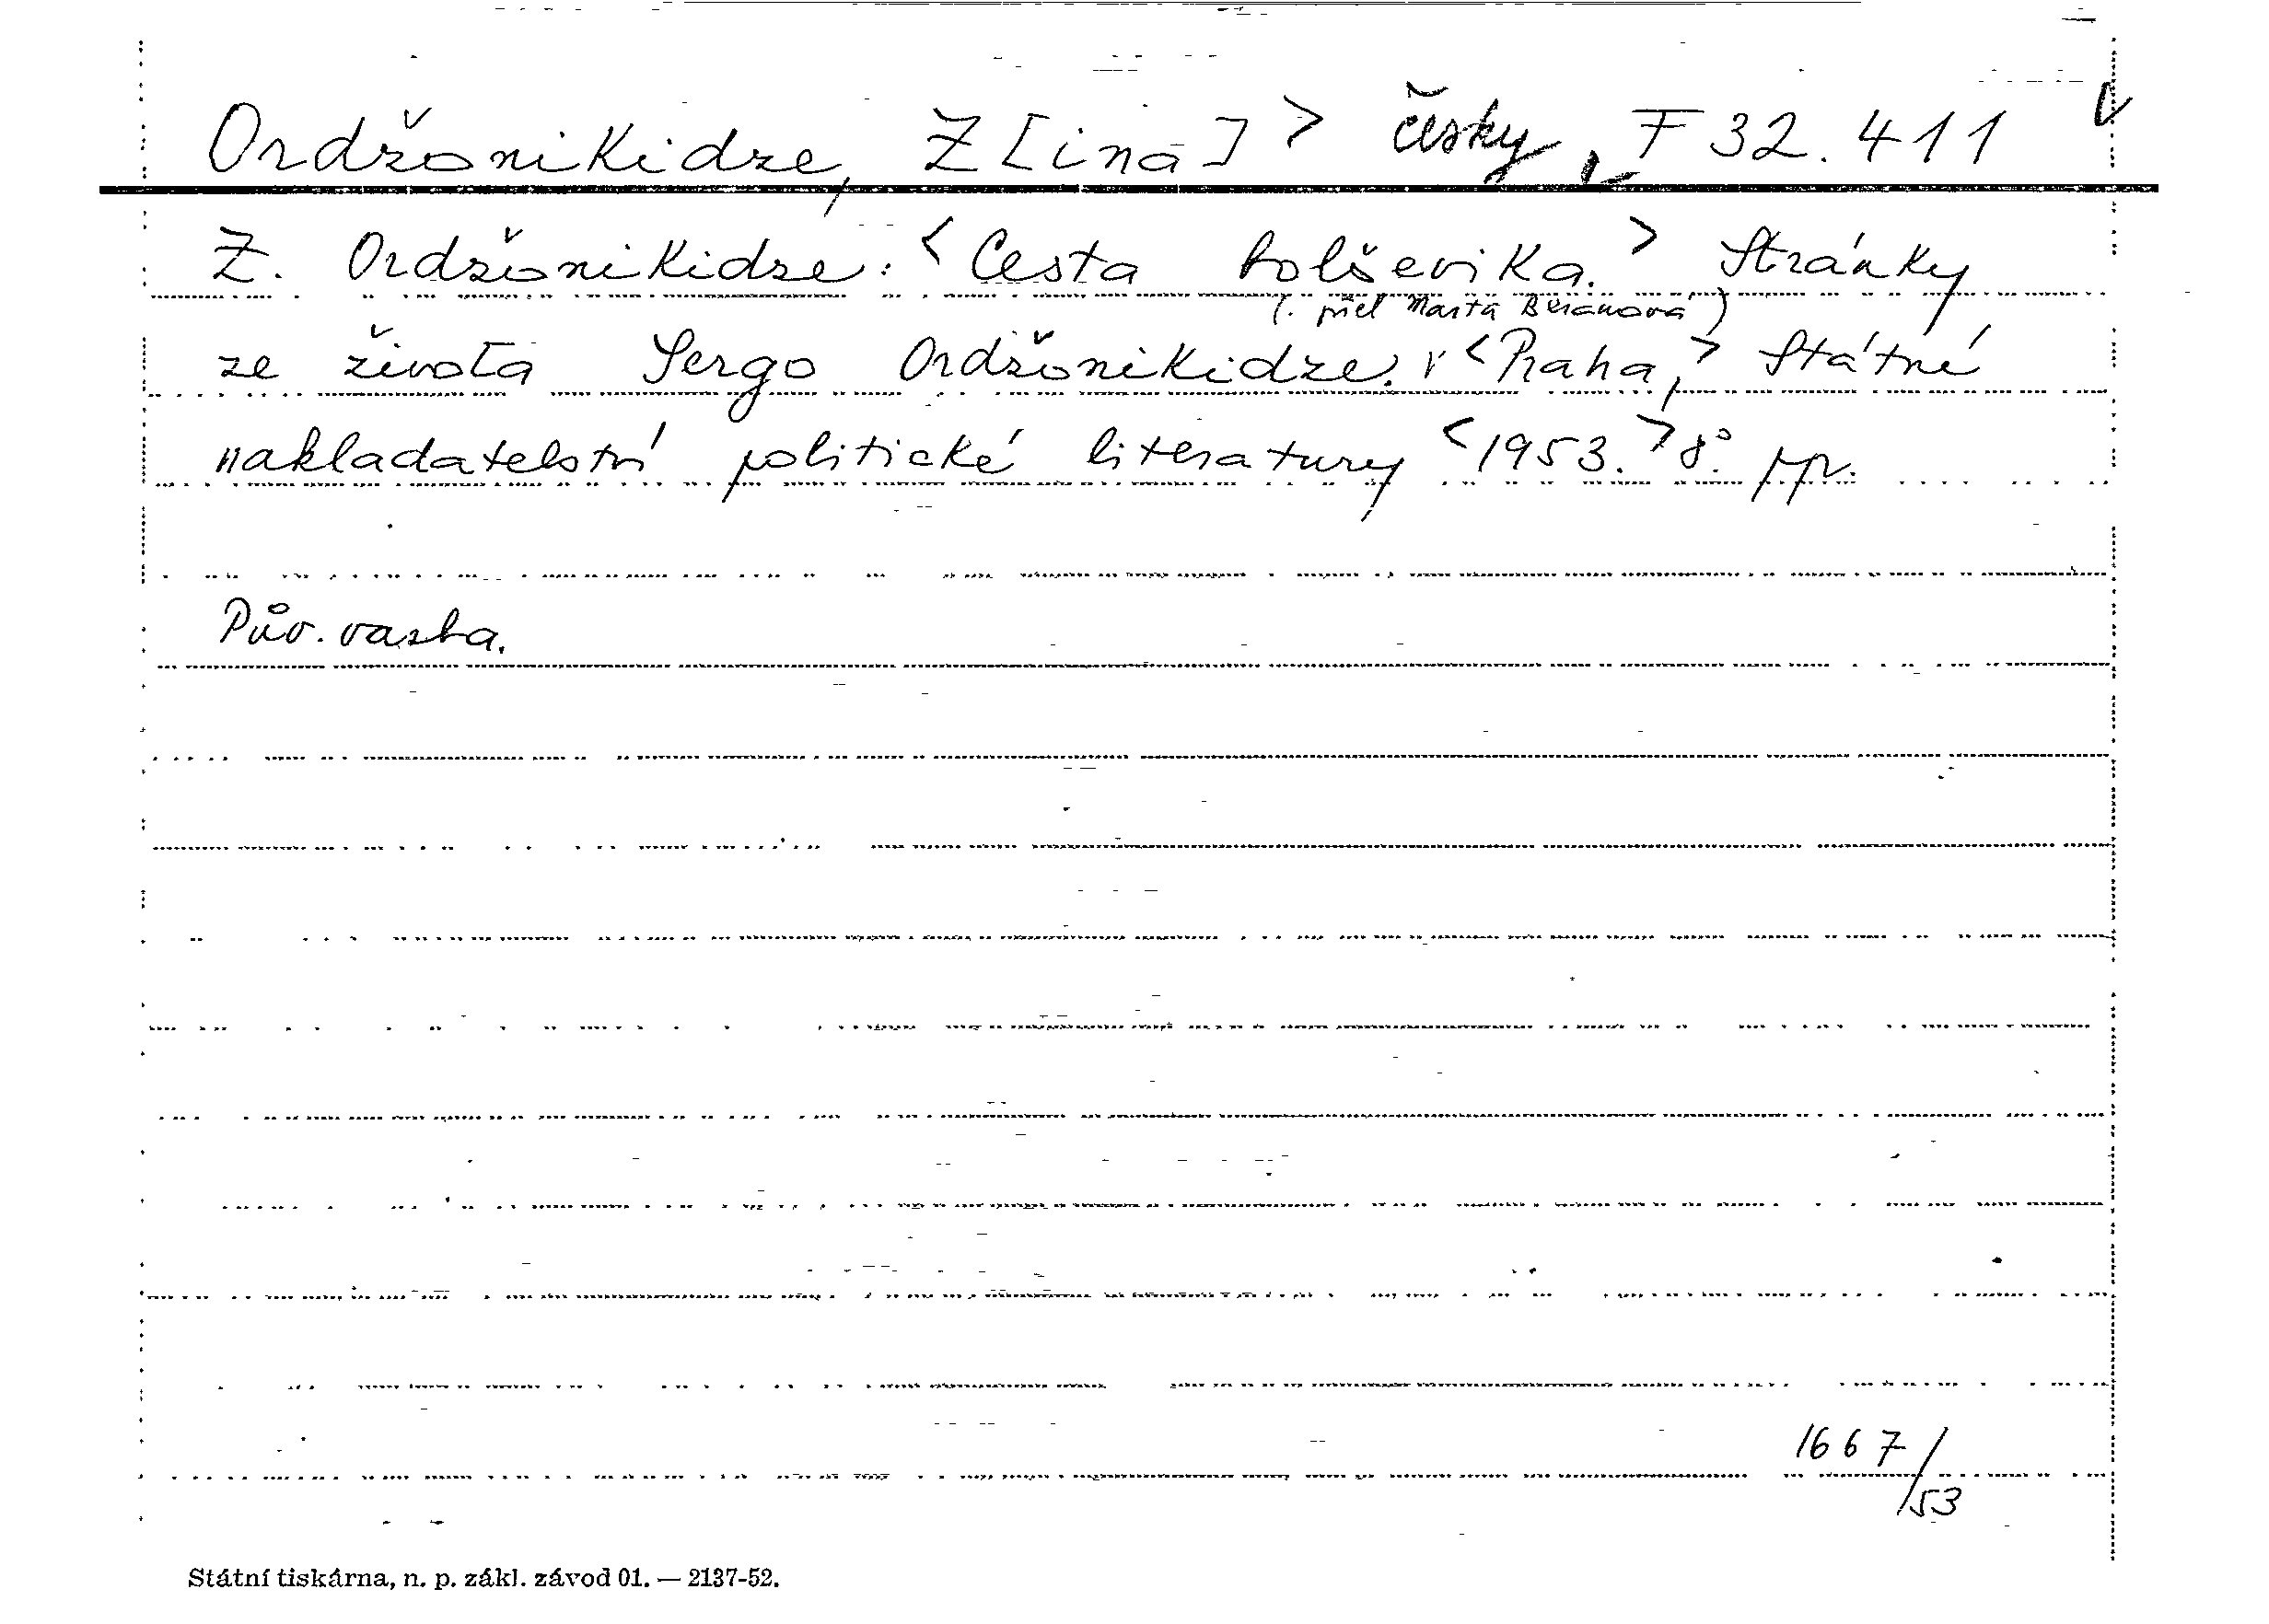 Ordžonikidze, Z[ina] > česky, F 32.411 V
Z. Ordžonikidze: < Cesta bolševika. > Stránky
(. přel Marta Beranová)
ze života Sergo Ordžonikidze. v < Praha, > Státné
nakladatelství politické literatury < 1953. > 8°. pp.
Pův. vazba.
1667/53
Státní tiskárna, n. p. zákl. závod 01. — 2137-52.